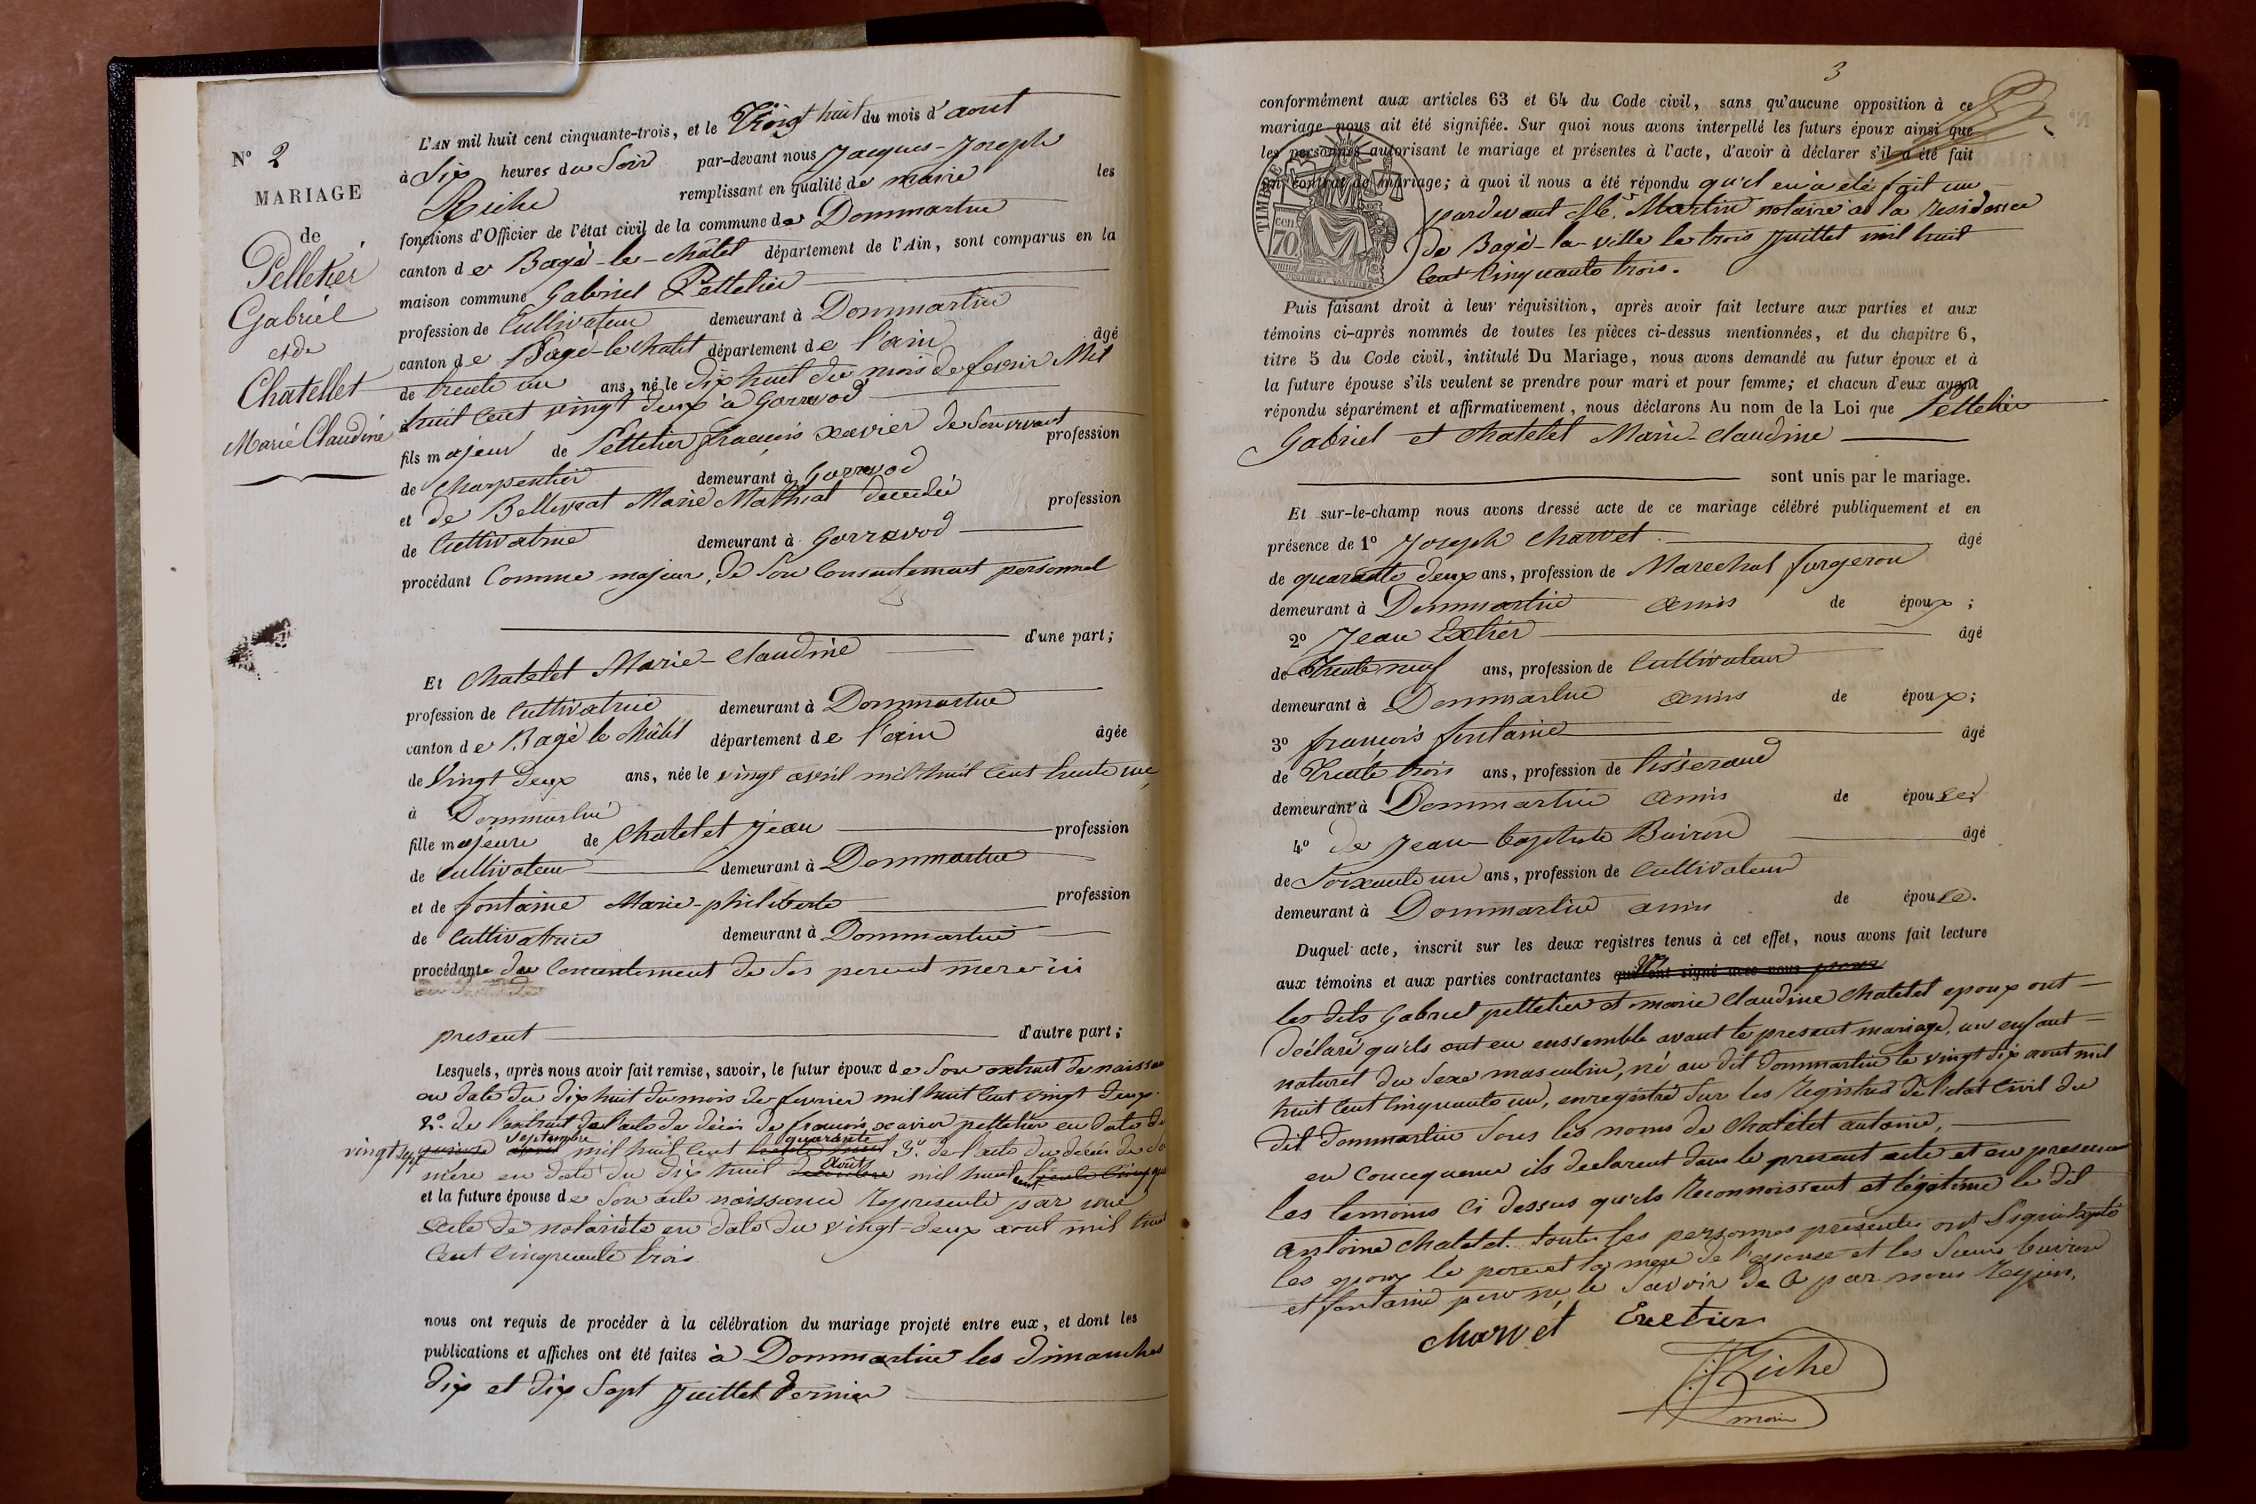 N° 2
MARIAGE
de
Pelletier
Gabriel
et de
Chatellet
Marie Claudine
L'AN mil huit cent cinquante-trois, et le Vingt huit du mois d'aout
à Six heures du Soir par-devant nous Jacques-Joseph
Riche remplissant en qualité de maire les
fonctions d'Officier de l'état civil de la commune de Dommartin
canton de Bagé-le-châtel département de l'Ain, sont comparus en la
maison commune Gabriel Pelletier
profession de Cultivateur demeurant à Dommartin
canton de Bagé-le-chatel département de l'ain âgé
de trente un ans, né le dix huit du mois de fevrier Mil
huit Cent vingt deux à Gorrevod
fils majeur de Pelletier françois xavier de Son vivant profession
de Charpentier demeurant à Gorrevod
et de Marie décédée profession
de Cultivatrice demeurant à Gorrevod
procédant Comme majeur, de Son Consentement personnel
d'une part;
Et Chatelet Marie-Claudine
profession de Cultivatrice demeurant à Dommartin
canton de Bagé le châtel département de l'ain âgée
de Vingt deux ans, née le vingt avril mil huit Cent trente un
à Dommartin
fille majeure de Chatelet Jean profession
de Cultivateur demeurant à Dommartin
et de fontaine Marie-philiberte profession
de Cultivatrice demeurant à Dommartin
procédante du Consentement de Ses pere et mere ici
present d'autre part;
Lesquels, après nous avoir fait remise, savoir, le futur époux de Son extrait de naissance
en date du dix huit du mois de fevrier mil huit Cent vingt deux.
2°. de l'extrait de l'acte de décès de françois xavier pelletier en date du
vingt sept septembre mil huit Cent quarante 3°. de l'acte du décès de sa
mère en date du dix huit août mil huit cent
et la future épouse de Son acte naissance représenté par une
acte de notoriété en date du vingt-deux aout mil huit
Cent Cinquante trois
nous ont requis de procéder à la célébration du mariage projeté entre eux, et dont les
publications et affiches ont été faites à Dommartin les dimanches
dix et dix Sept Juillet dernier
3
conformément aux articles 63 et 64 du Code civil, sans qu'aucune opposition à ce
mariage nous ait été signifiée. Sur quoi nous avons interpellé les futurs époux ainsi que
les personnes autorisant le mariage et présentes à l'acte, d'avoir à déclarer s'il a été fait
un contrat de mariage; à quoi il nous a été répondu qu'il en a été fait un
pardevant Me. Martin notaire à la residence
de Bagé-la-ville le trois Juillet mil huit
Cent Cinquante trois.
TIMBRE
cen
70
Puis faisant droit à leur réquisition, après avoir fait lecture aux parties et aux
témoins ci-après nommés de toutes les pièces ci-dessus mentionnées, et du chapitre 6,
titre 5 du Code civil, intitulé Du Mariage, nous avons demandé au futur époux et à
la future épouse s'ils veulent se prendre pour mari et pour femme; et chacun d'eux ayant
répondu séparément et affirmativement, nous déclarons Au nom de la Loi que Pelletier
Gabriel et Chatelet Marie-Claudine
sont unis par le mariage.
Et sur-le-champ nous avons dressé acte de ce mariage célébré publiquement et en
présence de 1° Joseph Charvet âgé
de quarante deux ans, profession de Marechal forgeron
demeurant à Dommartin amis de époux;
2° Jean âgé
de Trente neuf ans, profession de Cultivateur
demeurant à Dommartin amis de époux;
3° françois fontaine âgé
de Trente trois ans, profession de tisserand
demeurant à Dommartin amis de épouse;
4° de Jean-baptiste Buiron âgé
de Soixante un ans, profession de Cultivateur
demeurant à Dommartin amis de épouse.
Duquel acte, inscrit sur les deux registres tenus à cet effet, nous avons fait lecture
aux témoins et aux parties contractantes qui ont signé avec nous
les dits Gabriel pelletier et marie Claudine Chatelet epoux ont
déclaré qu'ils ont eu enssemble avant le present mariage, un enfant
naturel du Sexe masculin, né au dit dommartin le vingt six aout mil
huit Cent Cinquante un, enregistré Sur les Registres de l'état Civil du
dit dommartin Sous les noms de Chatelet antoine,
en Concequence ils declarent dans le present acte et en presence
les temoins Ci dessus qu'ils Reconnoissent et légitime le dit
antoine Chatelet. toutes les personnes presentes ont Signé Excepté
les epoux le pere et la mere de l'epouse et les Sieurs buiron
et fontaine pour ne le Savoir de Ce par nous Requis.
Charvét
Riche
maire